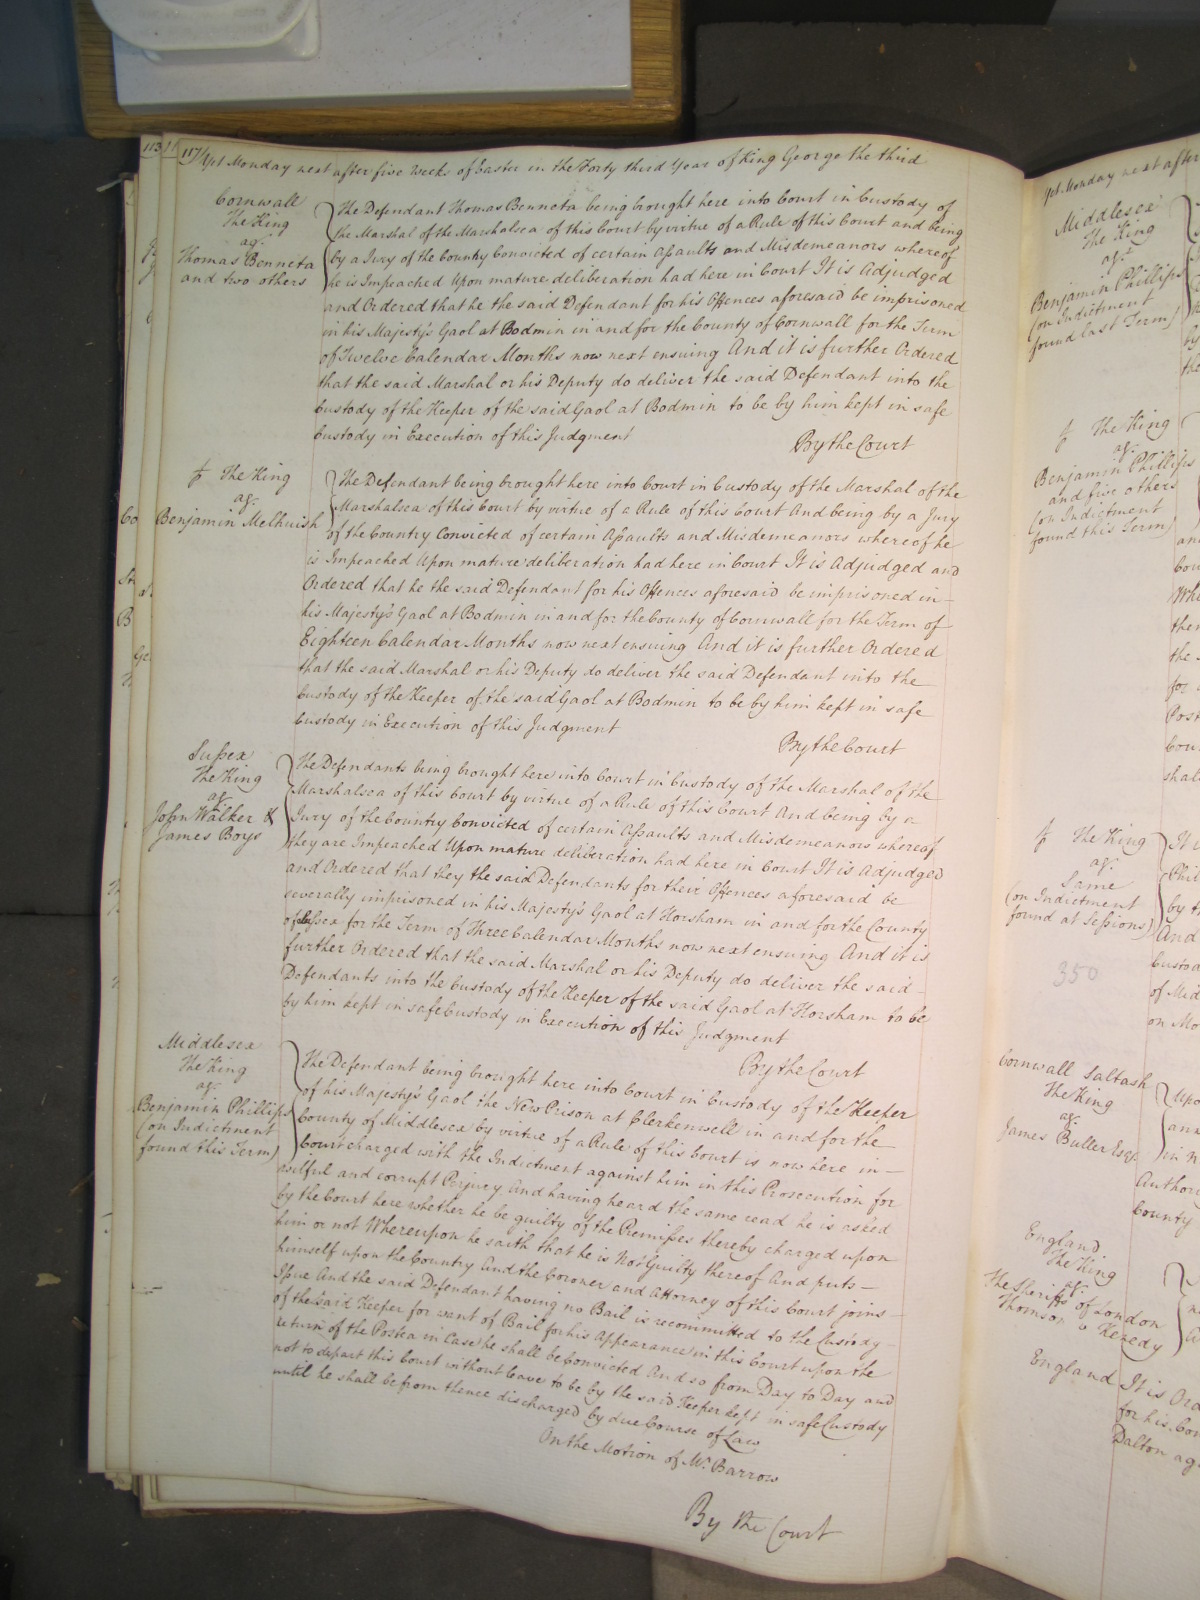 113
117
Yet Monday next after five Weeks of Easter in the Forty third Year of King George the third
Cornwall
The King
agt.
Thomas Benneta
and two others
The Defendant Thomas Benneta being brought here into Court in Custody of
the Marshal of the Marshalsea of this Court by virtue of a Rule of this Court and being
by a Jury of the Country Convicted of certain Assaults and Misdemeanors whereof
he is Impeached Upon mature deliberation had here in Court It is Adjudged
and Ordered that he the said Defendant for his Offences aforesaid be imprisoned
in his Majesty's Gaol at Bodmin in and for the County of Cornwall for the Term
of Twelve Calendar Months now next ensuing And it is further Ordered
that the said Marshal or his Deputy do deliver the said Defendant into the
Custody of the Keeper of the said Gaol at Bodmin to be by him kept in safe
Custody in Execution of this Judgment
By the Court
The King
agt.
Benjamin Melhuish
The Defendant being brought here into Court in Custody of the Marshal of the
Marshalsea of this Court by virtue of a Rule of this Court And being by a Jury
of the Country Convicted of certain Assaults and Misdemeanors whereof he
is Impeached Upon mature deliberation had here in Court It is Adjudged and
Ordered that he the said Defendant for his Offences aforesaid be imprisoned in
his Majesty's Gaol at Bodmin in and for the County of Cornwall for the Term of
Eighteen Calendar Months now next ensuing And it is further Ordered
that the said Marshal or his Deputy do deliver the said Defendant into the
Custody of the Keeper of the said Gaol at Bodmin to be by him kept in safe
Custody in Execution of this Judgment
By the Court
Sussex
The King
agt.
John Walker &
James Boys
The Defendants being brought here into Court in Custody of the Marshal of the
Marshalsea of this Court by virtue of a Rule of this Court And being by a
Jury of the Country Convicted of certain Assaults and Misdemeanors whereof
they are Impeached Upon mature deliberation had here in Court It is Adjudged
and Ordered that they the said Defendants for their Offences aforesaid be
severally imprisoned in his Majesty's Gaol at Horsham in and for the County
of Sussex for the Term of Three Calendar Months now next ensuing And it is
further Ordered that the said Marshal or his Deputy do deliver the said
Defendants into the Custody of the Keeper of the said Gaol at Horsham to be
by him kept in safe Custody in Execution of this Judgment
By the Court
Middlesex
The King
agt.
Benjamin Phillips
(on Indictment
found this Term)
The Defendant being brought here into Court in Custody of the Keeper
of his Majesty's Gaol the New Prison at Clerkenwell in and for the
County of Middlesex by virtue of a Rule of this Court is now here in
Court charged with the Indictment against him in this Prosecution for
wilful and corrupt Perjury And having heard the same read he is asked
by the Court here whether he be guilty of the Premisses thereby charged upon
him or not Whereupon he saith that he is Not Guilty thereof And puts
himself upon the Country And the Coroner and Attorney of this Court joins
Issue And the said Defendant having no Bail is recommitted to the Custody
of the said Keeper for want of Bail for his Appearance in this Court upon the
return of the Postea in Case he shall be Convicted And so from Day to Day and
not to depart this Court without leave to be by the said Keeper kept in safe Custody
until he shall be from thence discharged by due Course of Law
On the Motion of Mr. Barrow
By the Court
Yet Monday next after
Middlesex
The King
agt.
Benjamin Phillips
(on Indictment
found last Term)
The King
agt.
Benjamin Phillips
and five others
(on Indictment
found this Term)
The King
agt.
Same
(on Indictment
found at Sessions)
It i
Phil
by th
And
Custod
of Mid
on Mo
350
Cornwall Saltash
The King
agt.
James Buller Esqr.
Upo
ann
in n
Author
County
England
The King
agt.
The Sheriffs of London
Thomson v Kenedy
England
It is Ord
for his Cou
Dalton ag